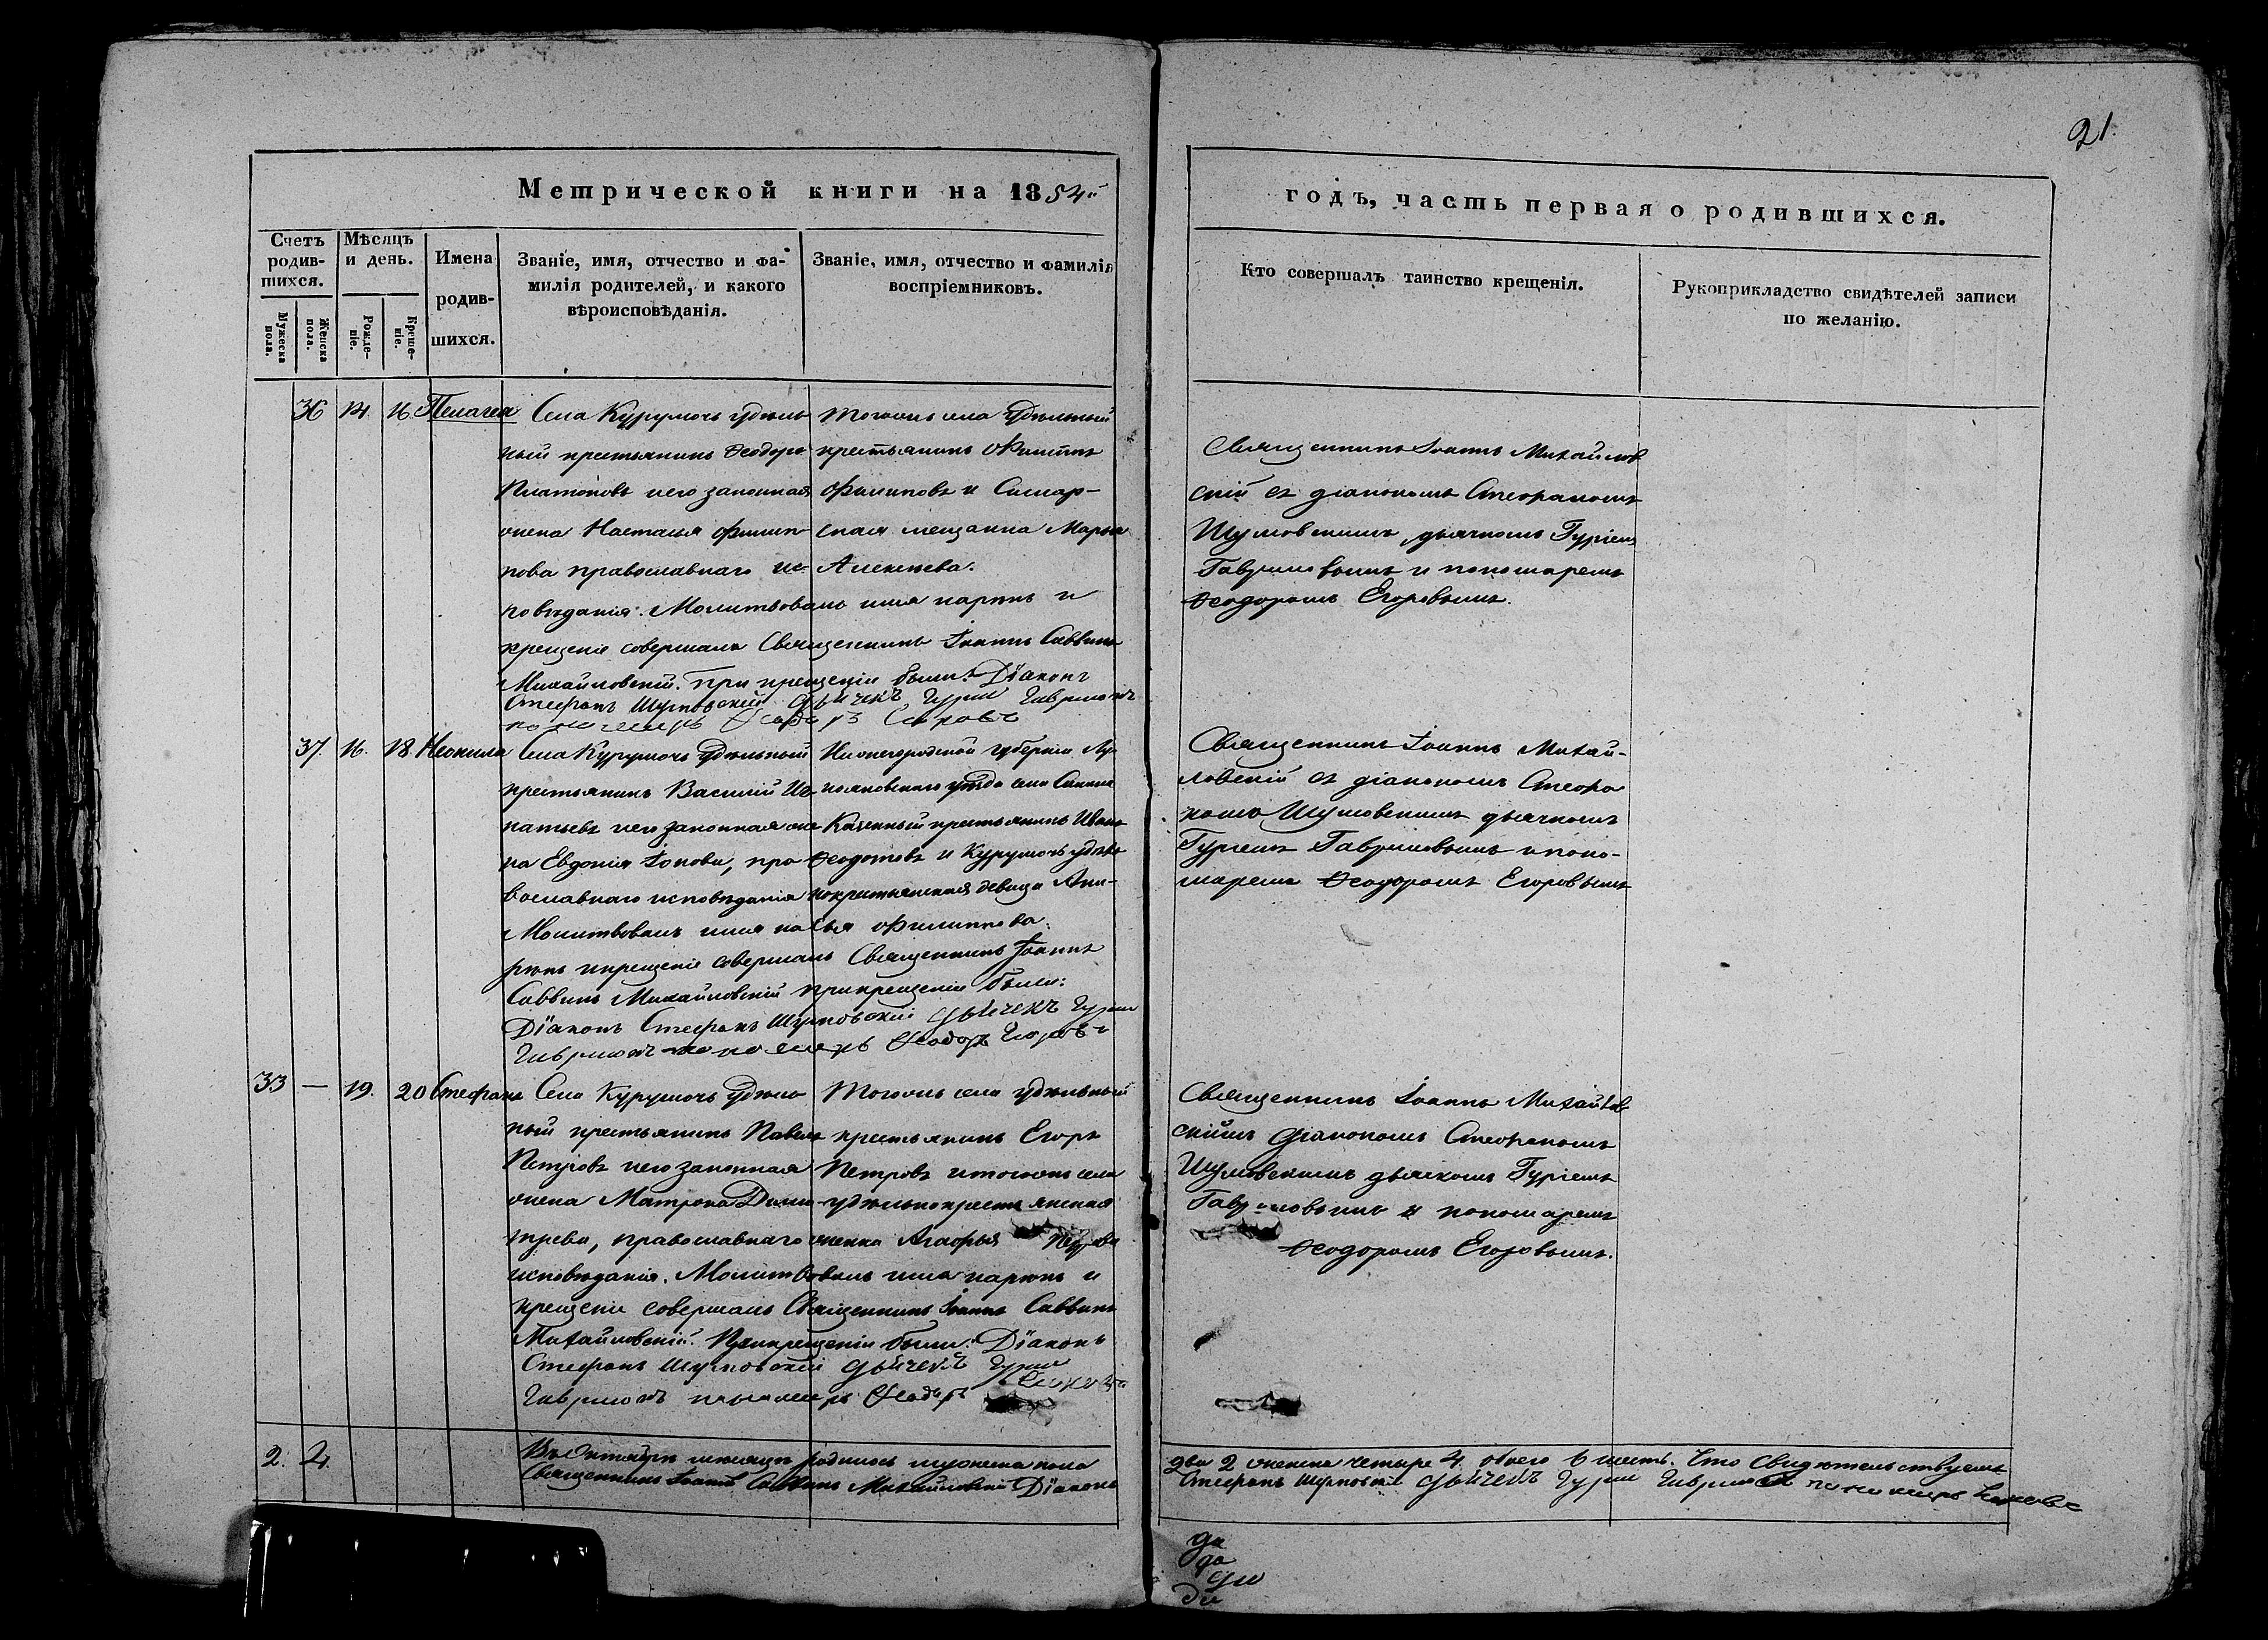 21.
Метрической книги на 1854й
годъ, часть первая о родившихся.
Счетъ родив-
шихся.
Мужеска пола.
Женска пола.
Мѣсяцъ и день.
Рожде-
ніе.
Креще-
ніе.
Имена
родив-
шихся.
Званіе, имя, отчество и фа-
милія родителей, и какого
вѣроисповѣданія.
Званіе, имя, отчество и фамилія
воспріемниковъ.
Кто совершалъ таинство крещенія.
Рукоприкладство свидѣтелей записи
по желанію.
36 14. 16 Пелагея
Села Курумочь удѣль
ный крестьянинъ Ѳеодоръ
Платоновъ и его законная
жена Настасья Филип
пова православнаго ис
повѣданія. Молитвовалъ имя нарекъ и
крещеніе совершалъ Священникъ Іоаннъ Саввинъ
Михайловскій. При крещеніи были: Діаконъ
Стефанъ Шумовскій дьячекъ Гурій Гавриловъ
пономарь Ѳеодоръ Егоровъ
Тогожъ села удѣльный
крестьянинъ Филиппъ
Филиповъ и Самар-
ская мещанка Марья
Алексѣева.
Священникъ Іоаннъ Михайлов
скій съ діакономъ Стефаномъ
Шумовскимъ, дьячкомъ Гуріемъ
Гавриловымъ и пономаремъ
Ѳеодоромъ Егоровымъ.
37. 16. 18 Неонила
Села Курумочь Удѣльный
крестьянинъ Василій Иг
натьевъ и его законная же
на Евдокія Іонова, пра
вославнаго исповѣданія
Молитвовалъ имя на
рекъ и крещеніе совершалъ Священникъ Іоаннъ
Саввинъ Михайловскій при крещеніи были:
Діаконъ Стефанъ Шумовскій дьячекъ Гурій
Гавриловъ пономарь Ѳеодоръ Егоровъ
Нижегородской губерніи Лу
кояновскаго уѣзда села
Казенный крестьянинъ Иванъ
Ѳеодотовъ и Курумочь удѣль
нокрестьянская девица Ани-
сья Филиппова.
Священникъ Іоаннъ Михай-
ловскій съ діакономъ Стефа
номъ Шумовскимъ дьячкомъ
Гуріемъ Гавриловымъ и поно-
маремъ Ѳеодоромъ Егоровымъ
33 — 19. 20 Стефанъ
Села Курумочь Удѣль
ный крестьянинъ Павелъ
Петровъ и его законная
жена Матрона Дими
трева, православнаго
исповѣданія. Молитвовалъ имя нарекъ и
крещеніе совершалъ Священникъ Іоаннъ Саввинъ
Михайловскій. При крещеніи были: Діаконъ
Стефанъ Шумовскій дьячекъ Гурій
Гавриловъ пономарь Ѳеодоръ Егоровъ
Тогожъ села удѣльный
крестьянинъ Егоръ
Петровъ и тогожъ села
удѣльнокрестьянская
женка Агафья
Священникъ Іоаннъ Михайлов
скій съ діакономъ Стефаномъ
Шумовскимъ дьячкомъ Гуріемъ
Гавриловымъ и пономаремъ
Ѳеодоромъ Егоровымъ.
2. 4. Въ Октябрѣ месяцѣ родилось мужеска пола
два 2 женска четыре 4. обоего 6 шесть. Что Свидѣтельствуемъ
Священникъ Іоаннъ Саввинъ Михайловскій Діаконъ
Стефанъ Шумовскій дьячекъ Гурій Гавриловъ пономарь Егоровъ
да
да
ди